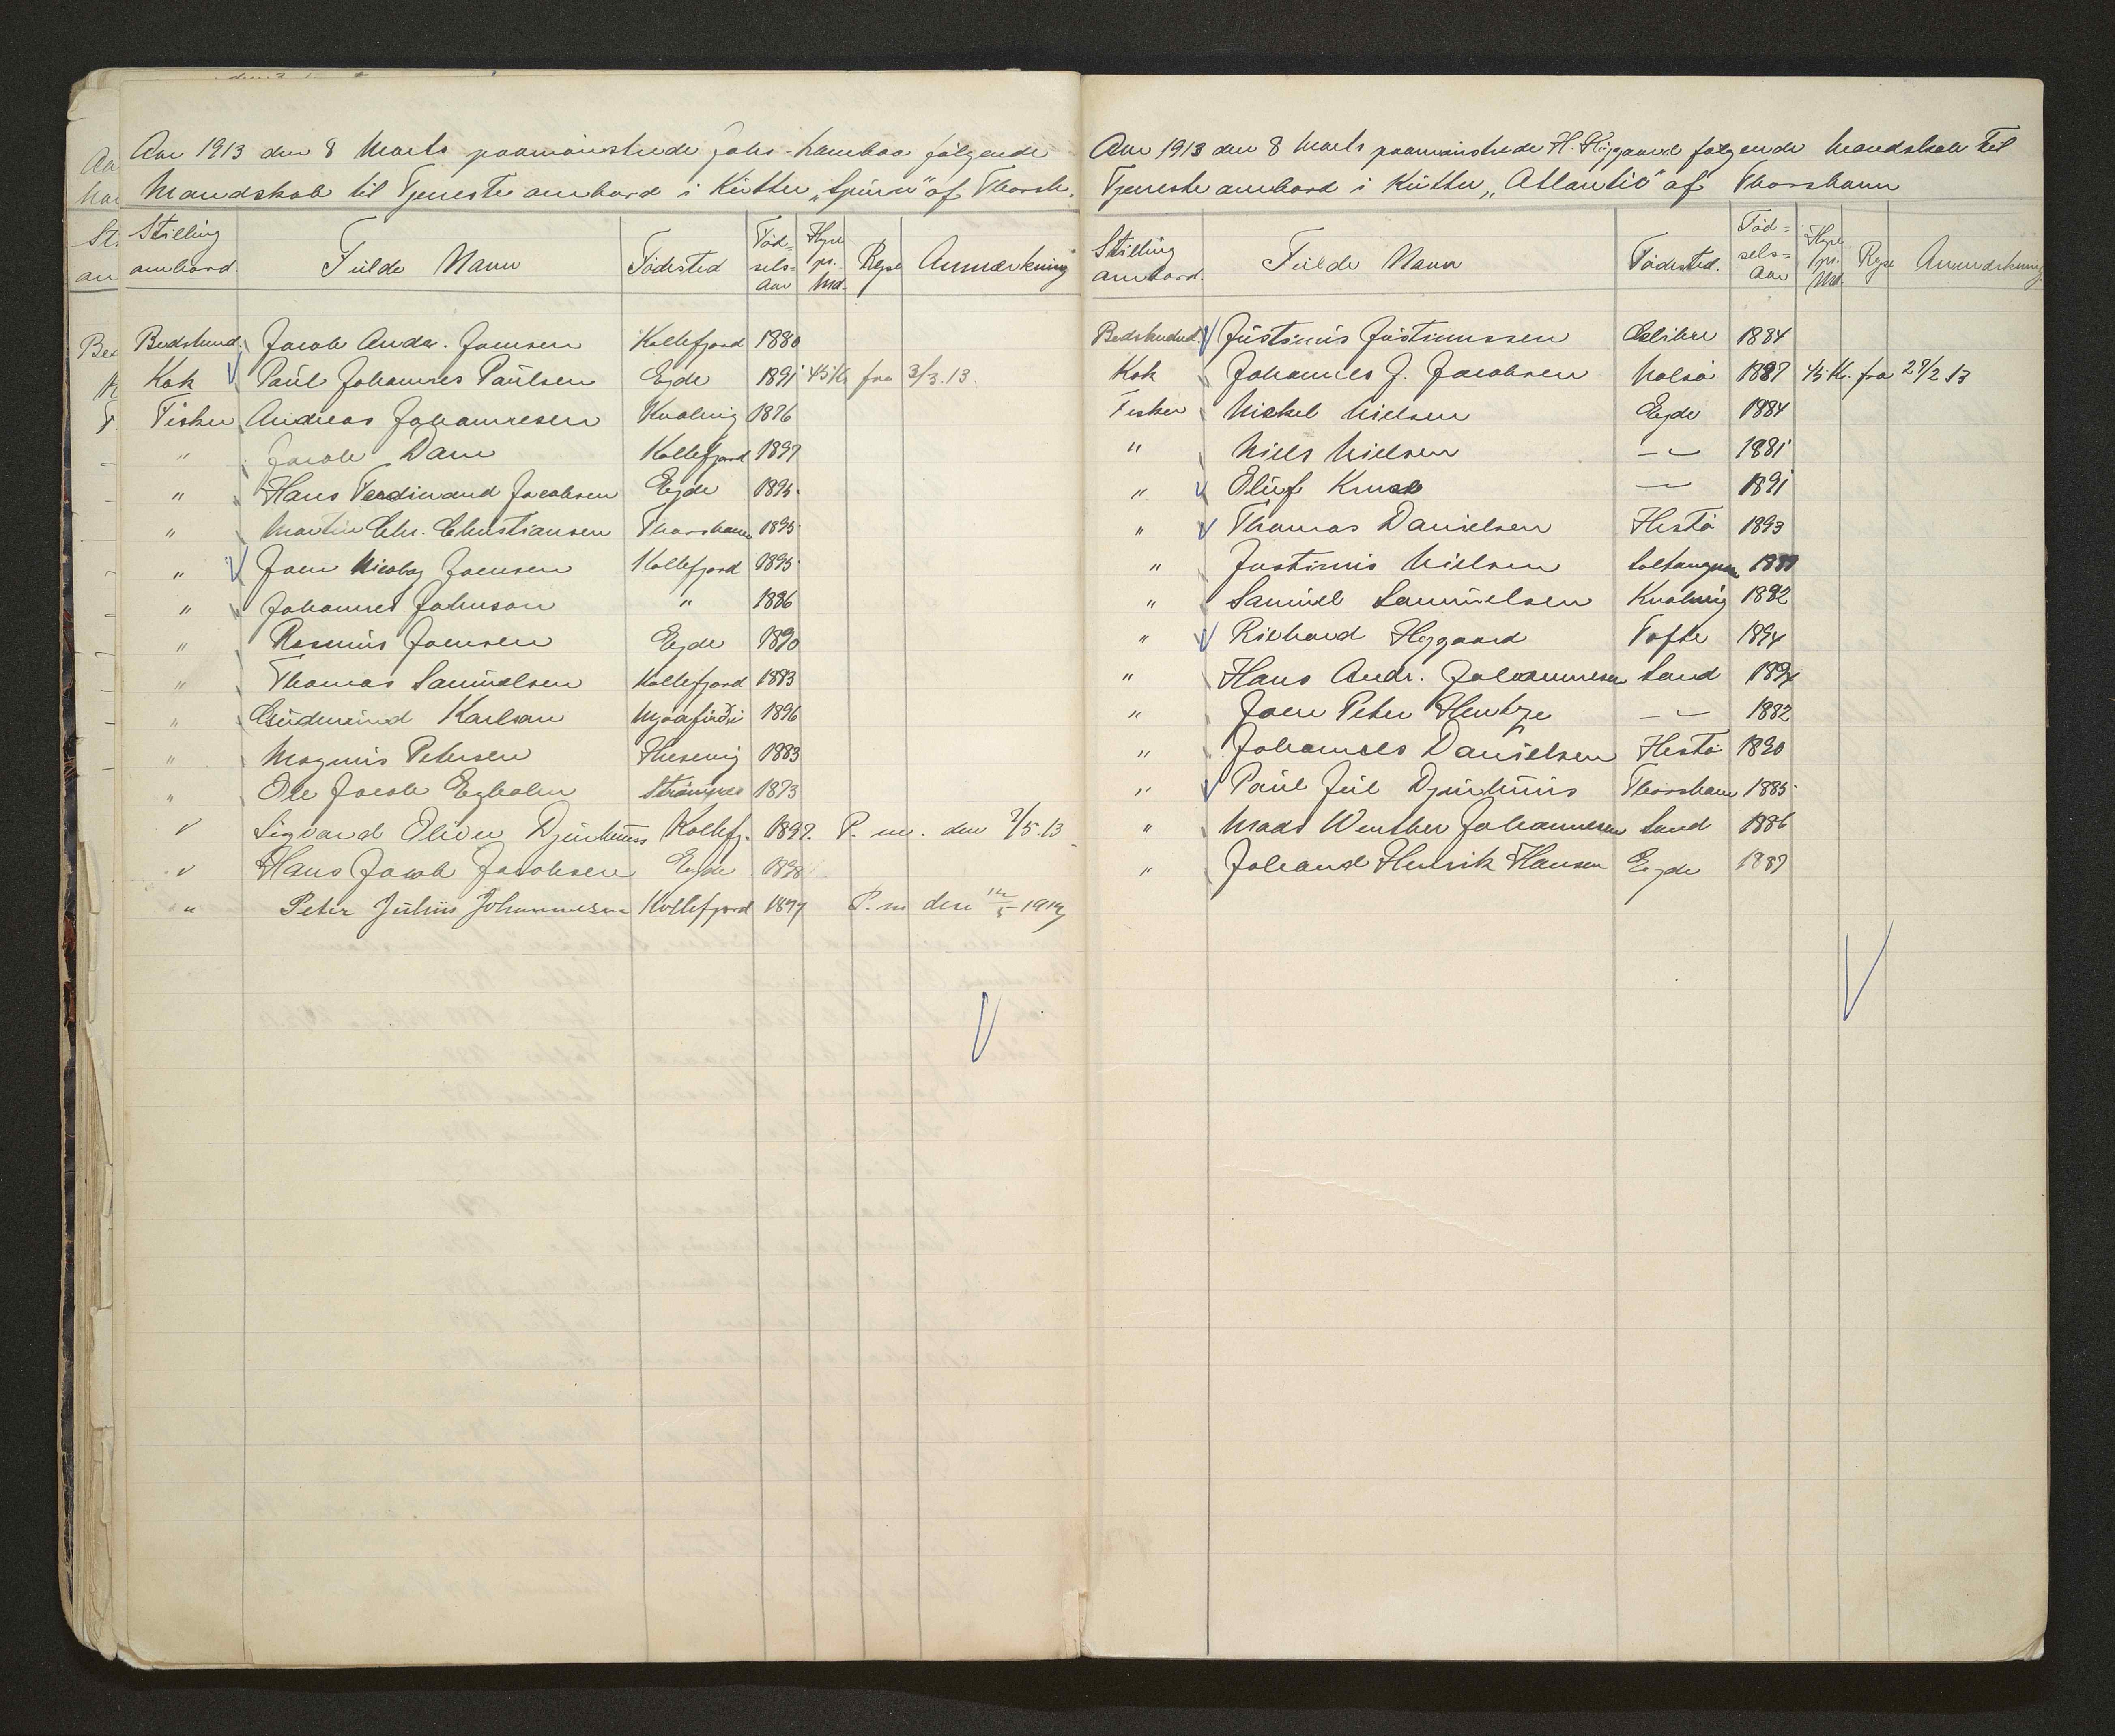 Aar 1913 den 8 Marts paamönstrede Johs. følgende
Mandskab til Tjeneste ombord i Kutter „Spurn" af Thorsh.
Stilling ombord. Fulde Navn Fødested Fødsels-Aar Hyre pr. Md. Rejse Anmærkning
Bedstmd. Jacob Andr. Joensen Kollefjord 1880
Kok Paul Johannes Paulsen Ejde 1891 45 Kr fra 3/3.13.
Fisker Andreas Johannesen Kvalvig 1876
" Jacob Dam Kollefjord 1897
" Hans Ferdinand Jacobsen Ejde 1895
" Martin Chr. Christiansen Thorshavn 1895
" Joen Nicolaj Joensen Kollefjord 1895
" Johannes Johnson " 1886
" Rasmus Joensen Ejde 1890
" Thomas Samuelsen Kollefjord 1883
" Gudmund Karlson Mjoafirdi 1896
" Magnus Petersen Husevig 1883
" Ole Jacob Egholm Strömnæs 1873
" Sigvard Oliver Djurhuus Kollefj. 1892. P. m. den 7/5.13
" Hans Jacob Jacobsen Ejde 1898
" Peter Julius Johannesen Kollefjord 1897 P. m den 14/5 1913
Aar 1913 den 8 Marts paamönstrede H. Højgaard følgende Mandskab til
Tjeneste ombord i Kutter „Atlantic" af Thorshavn
Stilling ombord. Fulde Navn Fødested. Fødsels-Aar Hyre pr. Md. Rejse Anmærkning
Bedstmd. Justinus Justinussen 1884
Kok Johannes J. Jacobsen Nolsö 1887 45 Kr. fra 27/2 13
Fisker Mickel Nielsen Ejde 1884
" Niels Nielsen — 1881
" Oluf Kruse — 1891
" Thomas Danielsen Hestö 1893
" Justinus Nielsen Saltangum
" Samuel Samuelsen Kvalvig 1882
" Richard Højgaard Tofte 1894
" Hans Andr. Johannesen Sand 1894
" Joen Peter Hentze — 1882
" Johannes Danielsen Hestö 1890
" Paul Jul Djurhuus Thorshavn 1885
" Mads Winther Johannesen Sand 1886
" Johand Henrik Hansen Ejde 1887